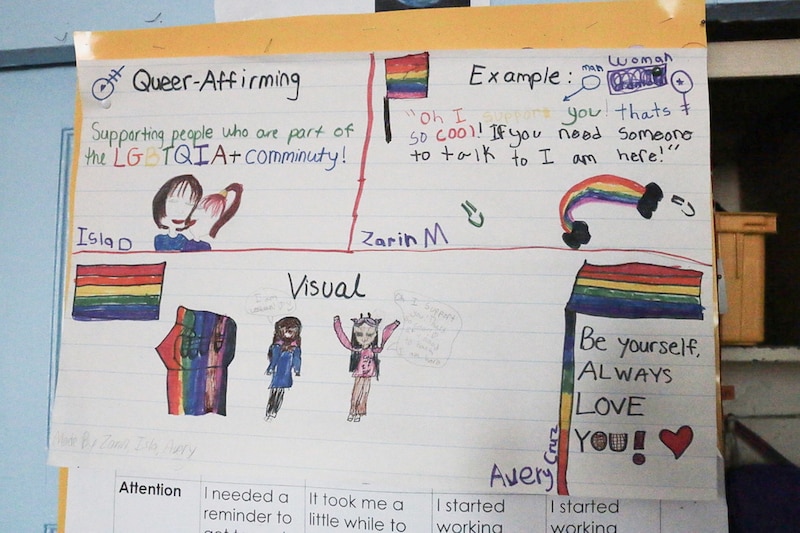 Queer-Affirming
Supporting people who are part of
the LGBTQIA+ comminuty!
Isla D
Example:
man
Woman
"Oh I support you! thats
so cool! If you need someone
to talk to I am here!"
Zarin M
Visual
I am
Oh I support
Be yourself,
ALWAYS
LOVE
YOU!
Avery Cruz
Made By Zarin, Isla, Avery
Attention
I needed a
reminder to
It took me a
little while to
I started
working
I started
working